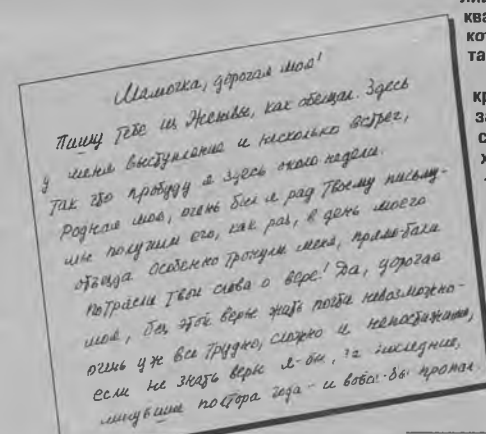 Мамочка, дорогая моя!
Пишу Тебе из Женевы, как обещал. Здесь
у меня выступление и несколько встреч,
так что пробуду я здесь около недели.
Родная моя, очень был я рад Твоему письму-
мы получили его, как раз, в день моего
отъезда. Особенно тронули меня, прямо-таки
потрясли Твои слова о вере! Да, дорогая
моя, без этой веры жить почти невозможно-
очень уж все трудно, сложно и непостижимо,
если не знать веры я-бы, за последние,
минувшие полтора года - и -бы пропал.
ква
кот
та
кр
за
с
х